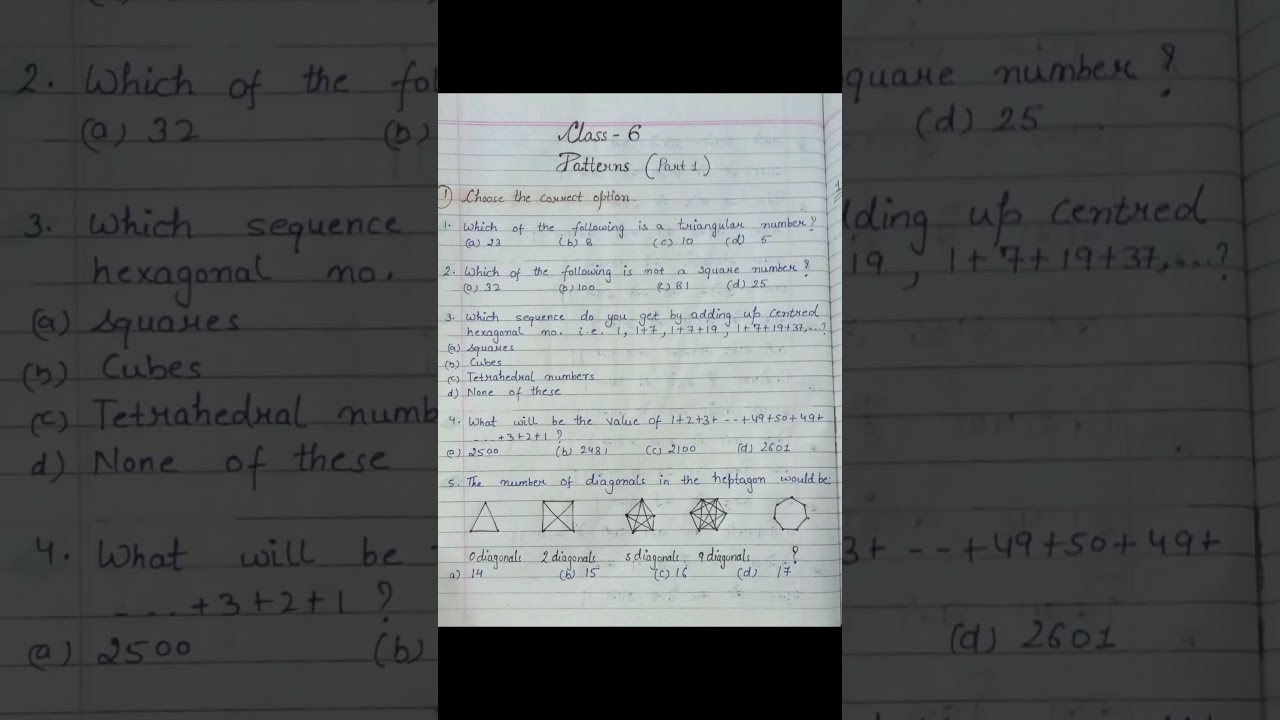 Class - 6
Patterns (Part 1)
1 Choose the correct option.
1. Which of the following is a triangular number?
(a) 23 (b) 8 (c) 10 (d) 5
2. Which of the following is not a square number?
(a) 32 (b) 100 (c) 81 (d) 25
3. Which sequence do you get by adding up centred
hexagonal no. i.e. 1, 1+7, 1+7+19, 1+7+19+37,...?
(a) Squares
(b) Cubes
(c) Tetrahedral numbers
d) None of these
4. What will be the value of 1+2+3+ --- +49+50+49+
....+3+2+1 ?
(a) 2500 (b) 2481 (c) 2100 (d) 2601
5. The number of diagonals in the heptagon would be:
0 diagonals 2 diagonals 5 diagonals 9 diagonals ?
a) 14 (b) 15 (c) 16 (d) 17